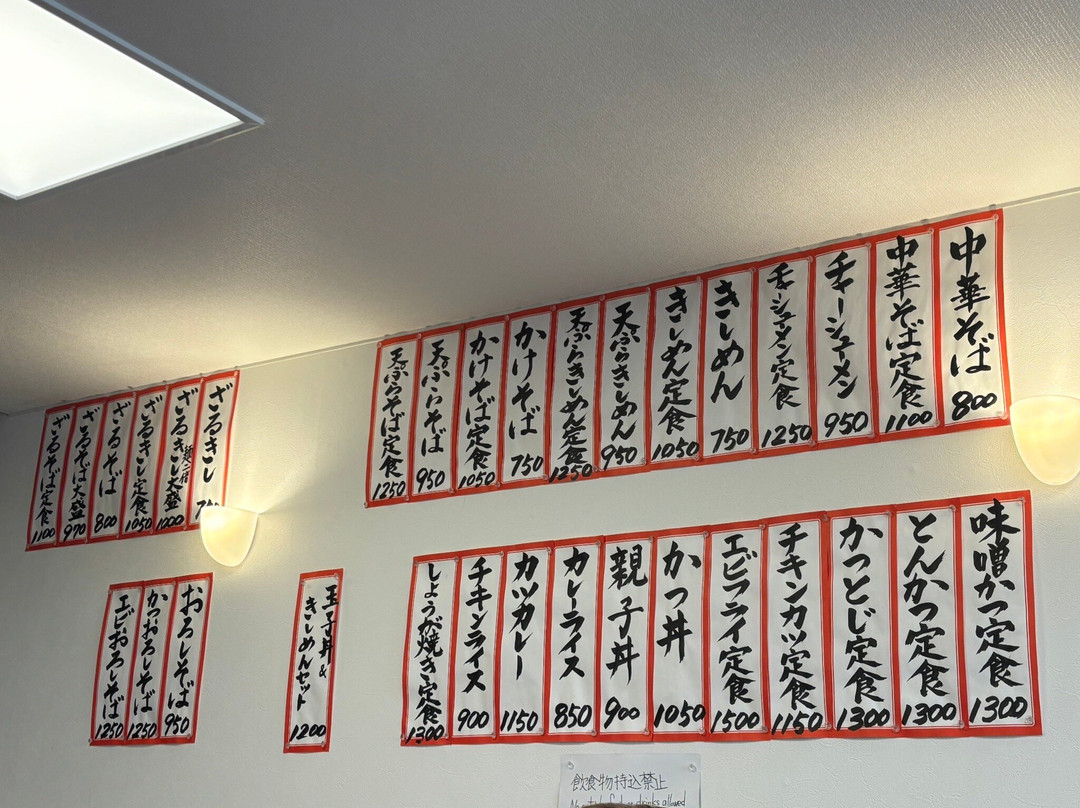 中華そば 800
中華そば定食 1100
チャーシューメン 950
チャーシューメン定食 1250
きしめん 750
きしめん定食 1050
天ぷらきしめん 950
天ぷらきしめん定食 1250
かけそば 750
かけそば定食 1050
天ぷらそば 950
天ぷらそば定食 1250
ざるきし
ざるきし大盛 麺二倍 1000
ざるきし定食 1050
ざるそば 800
ざるそば大盛 970
ざるそば定食 1100
味噌かつ定食 1300
とんかつ定食 1300
かつとじ定食 1300
チキンカツ定食 1150
エビフライ定食 1500
かつ丼 1050
親子丼 900
カレーライス 850
カツカレー 1150
チキンライス 900
しょうが焼き定食 1300
玉子丼&
きしめんセット 1200
おろしそば 950
かつおろしそば 1250
エビおろしそば 1250
飲食物持込禁止
drinks allowed